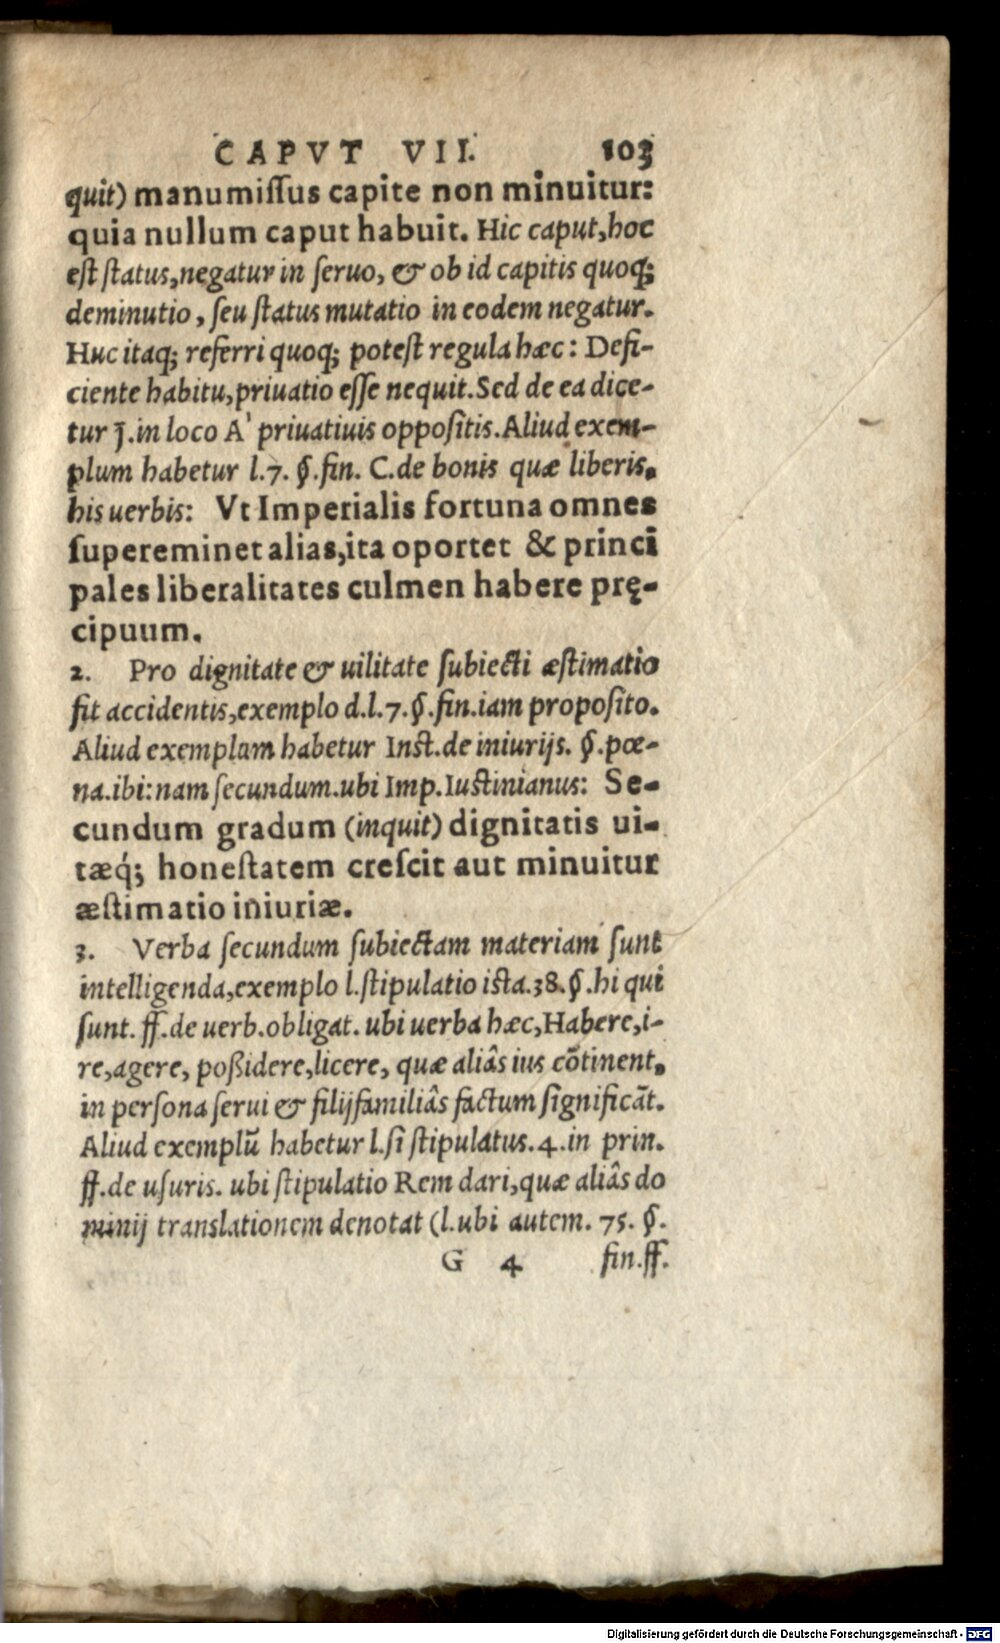 CAPVT VII. 103
quit) manumiſſus capite non minuitur:
quia nullum caput habuit. Hic caput,hoc
eſt ſtatus,negatur in ſeruo, & ob id capitis quoq;
deminutio, ſeu ſtatus mutatio in eodem negatur.
Huc itaq; referri quoq; poteſt regula hæc: Defi-
ciente habitu,priuatio eſſe nequit.Sed de ea dice-
tur j.in loco A' priuatiuis oppoſitis.Aliud exem-
plum habetur l.7. §.fin. C.de bonis quæ liberis.
his uerbis: Vt Imperialis fortuna omnes
ſupereminet alias,ita oportet & princi
pales liberalitates culmen habere prę-
cipuum.
2. Pro dignitate & uilitate ſubiecti æſtimatio
fit accidentis,exemplo d.l.7.§.fin.iam propoſito.
Aliud exemplum habetur Inſt.de iniurijs. §.pœ-
na.ibi:nam ſecundum.ubi Imp.Iuſtinianus: Se-
cundum gradum (inquit) dignitatis ui-
tæq́; honeſtatem creſcit aut minuitur
æſtimatio iniuriæ.
3. Verba ſecundum ſubiectam materiam ſunt
intelligenda,exemplo l.ſtipulatio iſta.38.§.hi qui
ſunt. ff.de uerb.obligat. ubi uerba hæc,Habere,i-
re,agere, poßidere,licere, quæ aliâs ius cõtinent,
in perſona ſerui & filijfamiliâs factum ſignificãt.
Aliud exemplũ habetur l.ſi ſtipulatus.4.in prin.
ff.de uſuris. ubi ſtipulatio Rem dari,quæ aliâs do
minij translationem denotat (l.ubi autem. 75. §.
G 4 fin.ff.
Digitalisierung gefördert durch die Deutsche Forschungsgemeinschaft - DFG